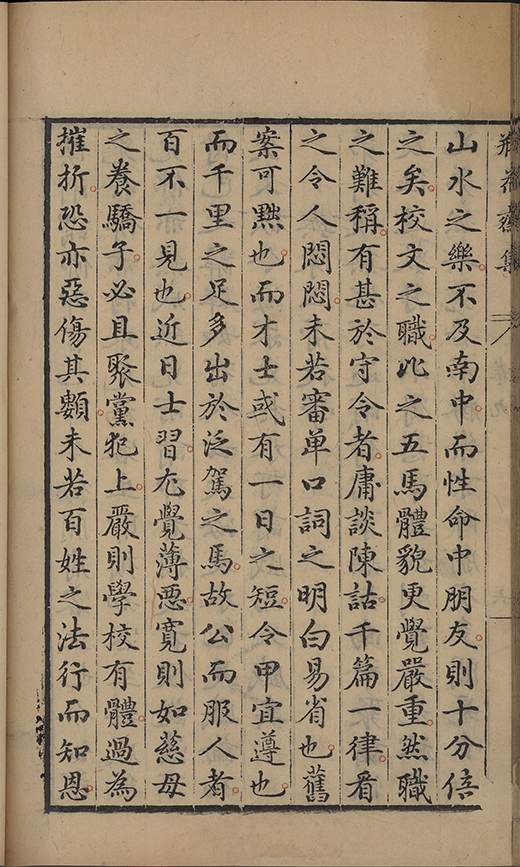 瓶花齋集
山水之樂不及南中而性命中朋友則十分倍
之矣校文之職比之五馬體貌更覺嚴重然職
之難稱有甚於守令者庸談陳詁千篇一律看
之令人悶悶未若審单口詞之明白易省也舊
案可㸃也而才士或有一日之短令甲宜遵也
而千里之足多出於泛駕之馬故公而服人者
百不一見也近日士習尤覺薄惡寛則如慈母
之養驕子必且聚黨犯上嚴則學校有體過為
摧折恐亦惡傷其𩔖未若百姓之法行而知恩